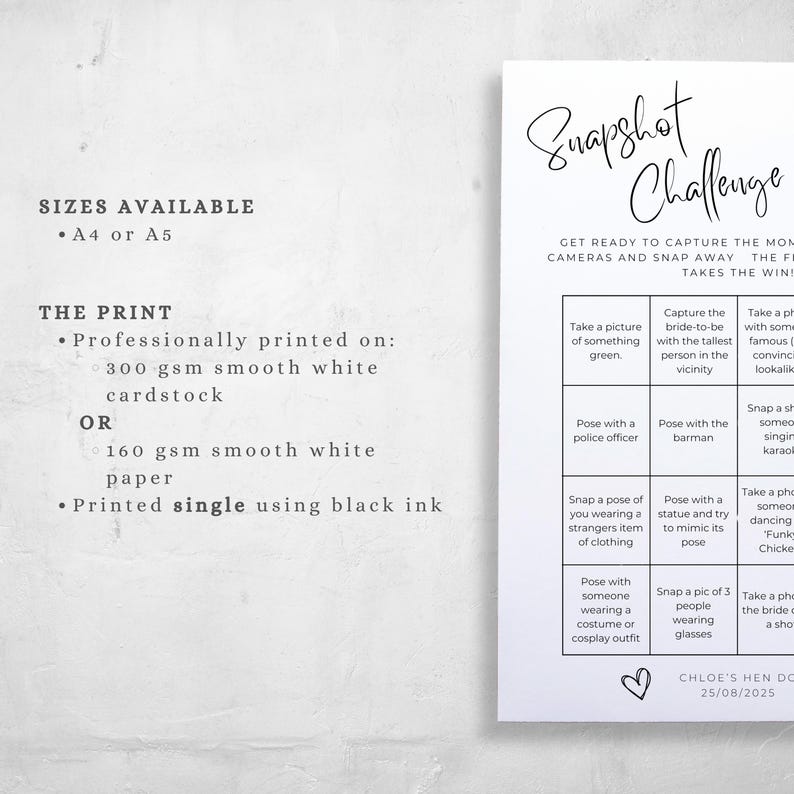 SIZES AVAILABLE
• A4 or A5
THE PRINT
• Professionally printed on:
◦ 300 gsm smooth white
cardstock
OR
◦ 160 gsm smooth white
paper
• Printed single using black ink
Snapshot
Challenge
GET READY TO CAPTURE THE MOM
CAMERAS AND SNAP AWAY THE F
TAKES THE WIN!
Take a picture
of something
green.
Capture the
bride-to-be
with the tallest
person in the
vicinity
Take a ph
with some
famous (
convinci
lookalik
Pose with a
police officer
Pose with the
barman
Snap a sh
someo
singin
karaok
Snap a pose of
you wearing a
strangers item
of clothing
Pose with a
statue and try
to mimic its
pose
Take a pho
someon
dancing
‘Funky
Chicke
Pose with
someone
wearing a
costume or
cosplay outfit
Snap a pic of 3
people
wearing
glasses
Take a pho
the bride d
a sho
CHLOE'S HEN DO
25/08/2025